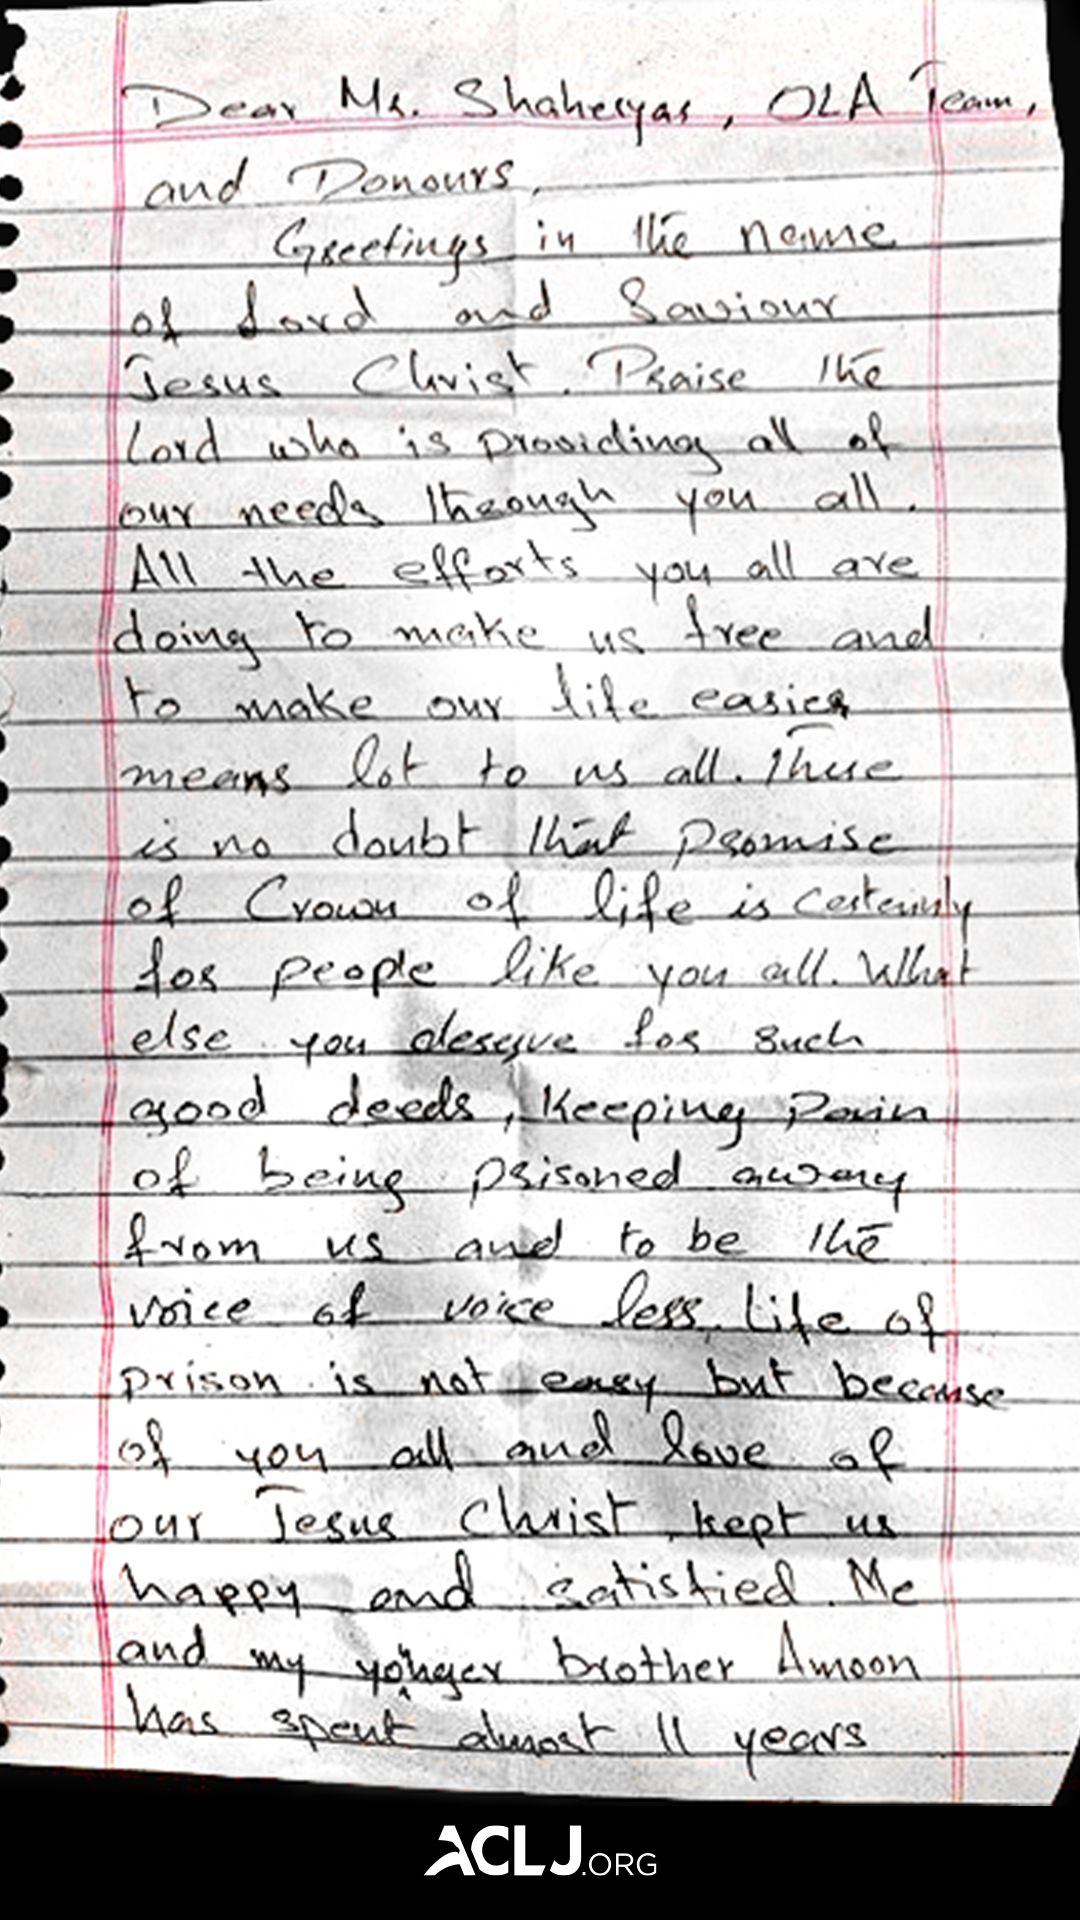 Dear Mr. Shaheryar, OLA Team,
and Donours,
Greetings in the name
of Lord and Saviour
Jesus Christ. Praise the
Lord who is providing all of
our needs through you all.
All the efforts you all are
doing to make us free and
to make our life easier
means lot to us all. There
is no doubt that promise
of Crown of life is certainly
for people like you all. What
else you deserve for such
good deeds, keeping pain
of being prisoned away
from us and to be the
voice of voice less. Life of
prison is not easy but because
of you all and love of
our Jesus Christ kept us
happy and satisfied. Me
and my younger brother Amoon
has spent almost 11 years
ACLJ.ORG